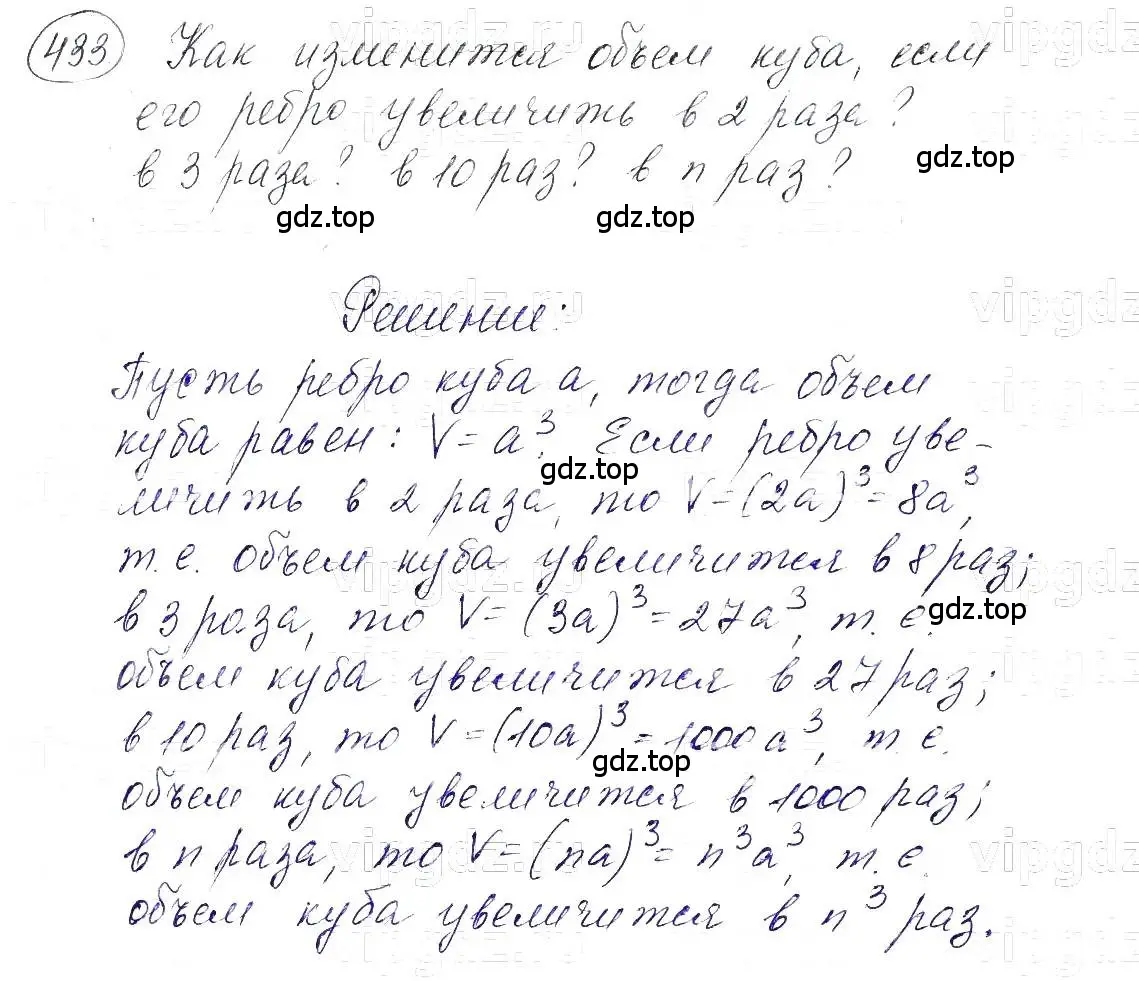 433 Как изменится объем куба, если
его ребро увеличить в 2 раза?
в 3 раза? в 10 раз? в n раз?
gdz.top
gdz.top gdz.top
Решение:
Пусть ребро куба a, тогда объем
куба равен: V = a³. Если ребро уве-
gdz.top
личить в 2 раза, то V = (2a)³ = 8a³,
т.е. объем куба увеличится в 8 раз;
в 3 раза, то V = (3a)³ = 27a³, т.е.
gdz.top
объем куба увеличится в 27 раз;
в 10 раз, то V = (10a)³ = 1000a³, т.е.
gdz.top
объем куба увеличится в 1000 раз;
в n раза, то V = (na)³ = n³a³, т.е
объем куба увеличится в n³ раз.